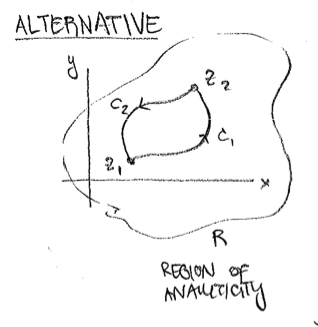 ALTERNATIVE
y
z₂
c₂
c₁
z₁
x
R
REGION OF
ANALYTICITY